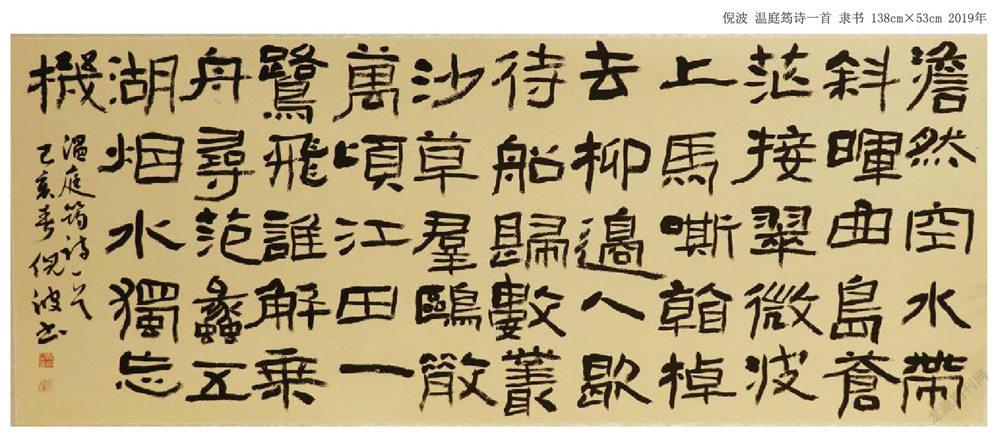 倪波 温庭筠诗一首 隶书 138cm×53cm 2019年
澹然空水帶
斜暉曲島蒼
茫接翠微波
上馬嘶看棹
去柳邊人歇
待船歸數叢
沙草羣鷗散
萬頃江田一
鷺飛誰解乘
舟尋范蠡五
湖烟水獨忘
機
温庭筠诗一首
己亥春 倪波书
龙源期刊网